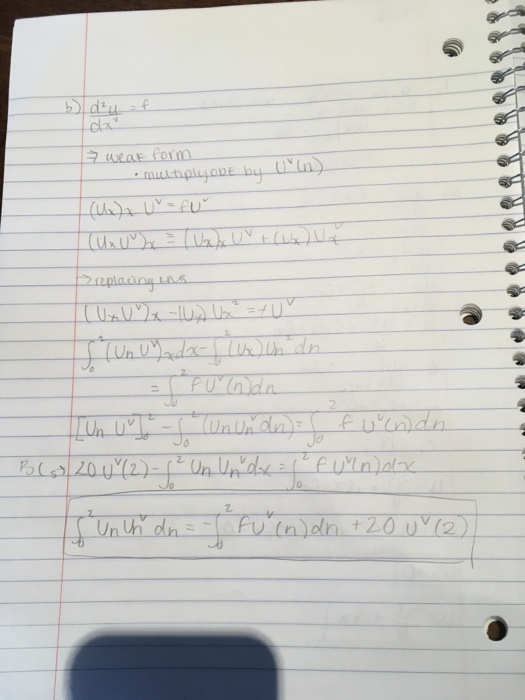 b) d²u/dx² = f
→ weak form
• multiply ODE by Uᵛ(x)
(Ux)x Uᵛ = fUᵛ
(UxUᵛ)x = (Ux)x Uᵛ + (Ux)Uxᵛ
→ replacing LHS
(UxUᵛ)x - (Ux) Uxᵛ = fUᵛ
∫₀² (Ux Uᵛ)x dx - ∫₀² (Ux)Uxᵛ dx
= ∫₀² fUᵛ(x)dx
[Ux Uᵛ]₀² - ∫₀² (Ux Uxᵛ dx) = ∫₀² f Uᵛ(x) dx
20 Uᵛ(2) - ∫₀² Ux Uxᵛ dx = ∫₀² f Uᵛ(x) dx
∫₀² Ux Uxᵛ dx = -∫₀² fUᵛ(x) dx + 20 Uᵛ(2)